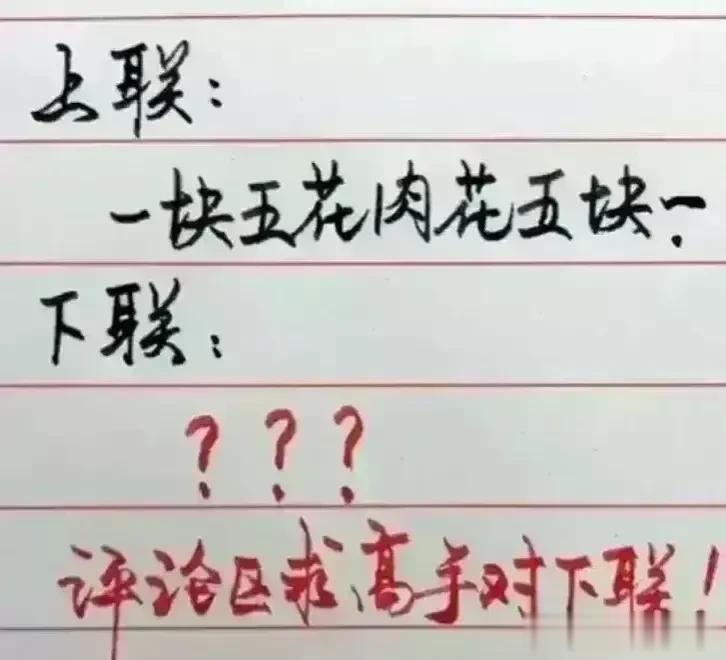 上联:
一块五花肉花五块一
下联:
???
评论区求高手对下联!